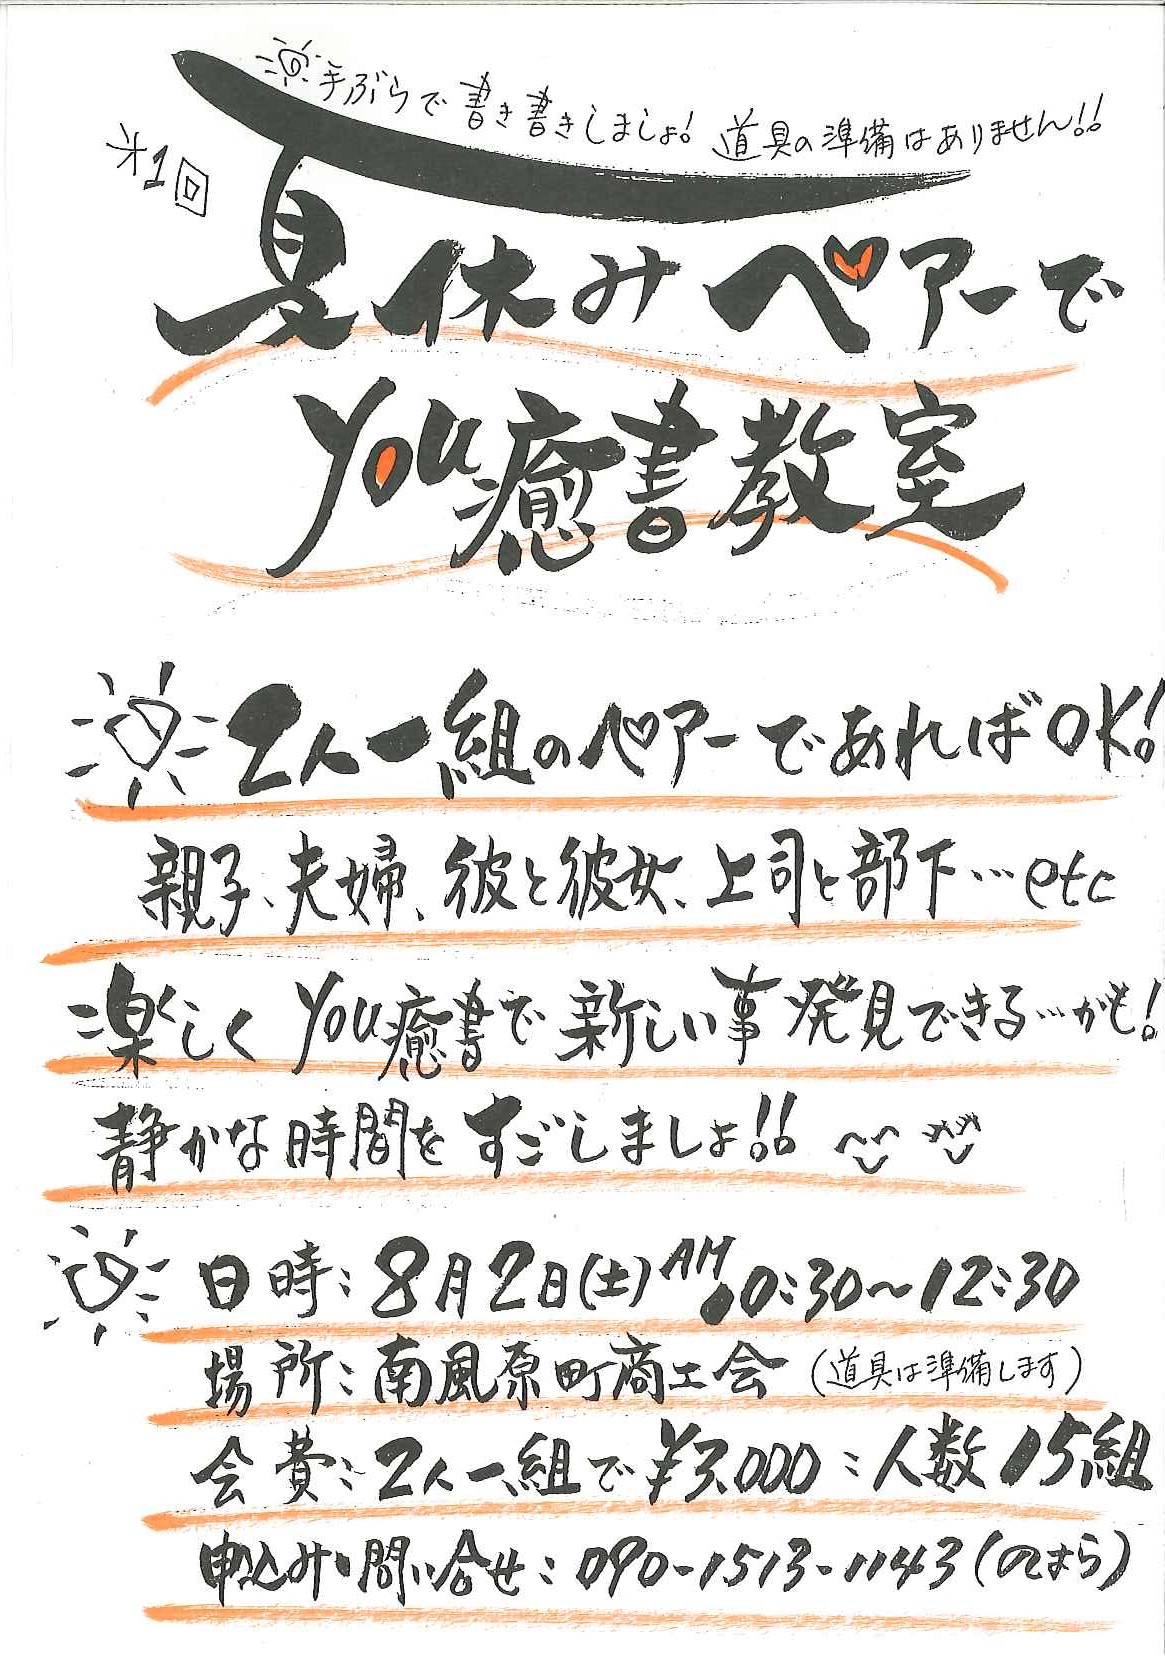 手ぶらで書き書きしましょ! 道具の準備はありません!!
才1回
夏休みペアーで
you癒書教室
2人一組のペアーであればOK!
親子、夫婦、彼と彼女、上司と部下…etc
楽しくyou癒書で新しい事発見できる…かも!
静かな時間をすごしましょ!!
日時:8月2日(土)AM10:30~12:30
場所:南風原町商工会(道具は準備します)
会費:2人一組で¥3.000:人数15組
申込み・問い合せ:090-1513-1143(のはら)